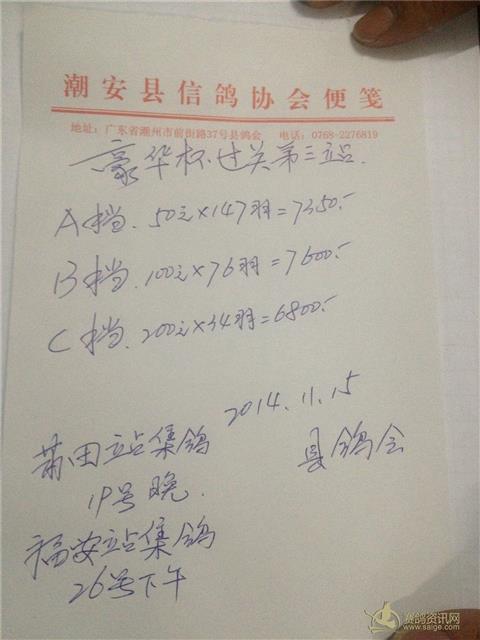 潮安县信鸽协会便笺
地址：广东省潮州市前街路37号县鸽会 电话：0768-2276819
豪华杯过关第三站.
A档.50元×147羽=7350.-
B档.100元×76羽=7600.-
C档.200元×34羽=6800.-
2014.11.15
县鸽会
莆田站集鸽
19号晚.
福安站集鸽
26号下午
赛鸽资讯网
www.saige.com